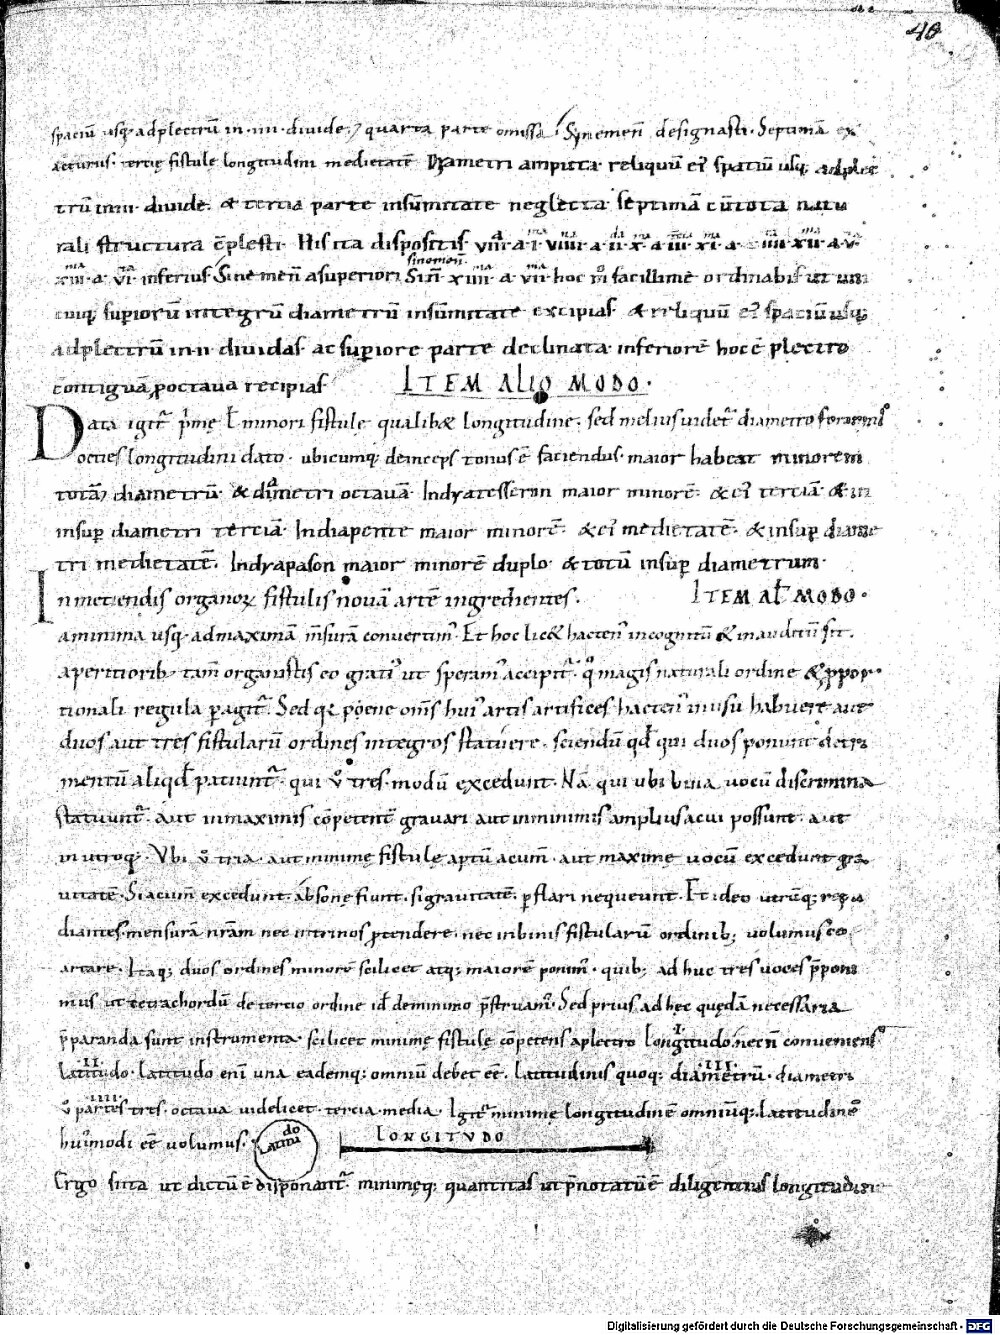 48
spaciū usq; adplectrū in .iiii. divide, & quarta parte omissa Synemen̄ designasti. Septimā ex
acturus. tertię fistulę longitudini medietatē Dyametri amputa. reliquū ei' spatiū usq; adplec
trū in iii. divide. & tercia parte insūmitate neglecta. septimā cū tota natu
rali structura ēplesti. His ita dispositis. viii.a.i. viiii.a.ii. x.a.iii. xi.a.iiii. xii.a.v.
sinemen̄.
xiii.a.vi. inferius Sinemen̄ a superiori Sin̄ xiiii.a.vii. hoc m̊ facillime ordinabis ut uni
cuiq; superiorū integrū diametrū insūmitate excipias. & reliquū ei' spaciū usq;
adplectrū in .ii. dividas. ac superiore parte declinata inferiorē hoc ē plectro
contiguā, p octava recipias. ITEM ALIO MODO.
Data igit' p'mę t minori fistule qualib& longitudine. sed melius videt' diametro foraminis
octies longitudini dato. ubicumq; deinceps tonus ē faciendus. maior habeat minorem
totā, diametrū. & diametri octavā. In dyatesseron maior minorē. & ei' terciā. & in
insup diametri terciā. In diapente maior minorē. & ei' medietatē. & insup diame
tri medietatē. In dyapason maior minorē duplo. & totū insup diametrum.
In metiendis organoꝝ fistulis novā artē ingredientes. ITEM AŁ MODO.
a minima usq; ad maximā m̄surā convertim'. Et hoc lic& hacten' incognitū & inauditū sit.
apertiorib; tam̄ organistis eo grati' ut speram' accipit'. q̊ magis naturali ordine & ppor
tionali regula pagit'. Sed q̄ pene om̄s hui' artis artifices hacten' in usu habuere aut
duos aut tres fistularū ordines integros statuere. sciendū qđ qui duos ponunt detri
mentū aliqđ patiunt'. qui v̊ tres. modū excedunt. Nā qui ubi bina vocū discrimina
statuunt'. Aut in maximis cōpetentē gravari aut in minimis amplius acui possunt. aut
in utroq;. Ubi v̊ tria. aut minimę fistulę aptū acum̄. aut maximę vocū excedunt gra
vitatē. Si acum̄ excedunt. absonę fiunt. si gravitatē. pflari nequeunt. Et ideo utrūq; repu
diantes. mensurā nr̄am nec in trinos ptendere. nec in binis fistularū ordinib; volumus co
artare. Itaq; duos ordines minorē scilicet atq; maiorē ponim'. quib; ad huc tres voces p̄poni
mus ut tetrachordū de tertio ordine id deminimo p̄struam'. Sed prius ad hęc quędā necessaria
p̄paranda sunt instrumenta. scilicet minimę fistulę cōpetens a plectro longitudo. necn̄ conveniens
latitudo. latitudo eni una eademq; omniū debet ēē. latitudinis quoq; diametrū. diametri
v̊ partes tres. octava videlicet. tercia. media. Igit' minimę longitudinē omniūq; latitudinē
hui'modi ēē volumus. Latitudo LONGITVDO
Ergo sita ut dictū ē disponant'. minimęq; quantitas ut p̄notatū ē diligentius longitudini
Digitalisierung gefördert durch die Deutsche Forschungsgemeinschaft - DFG